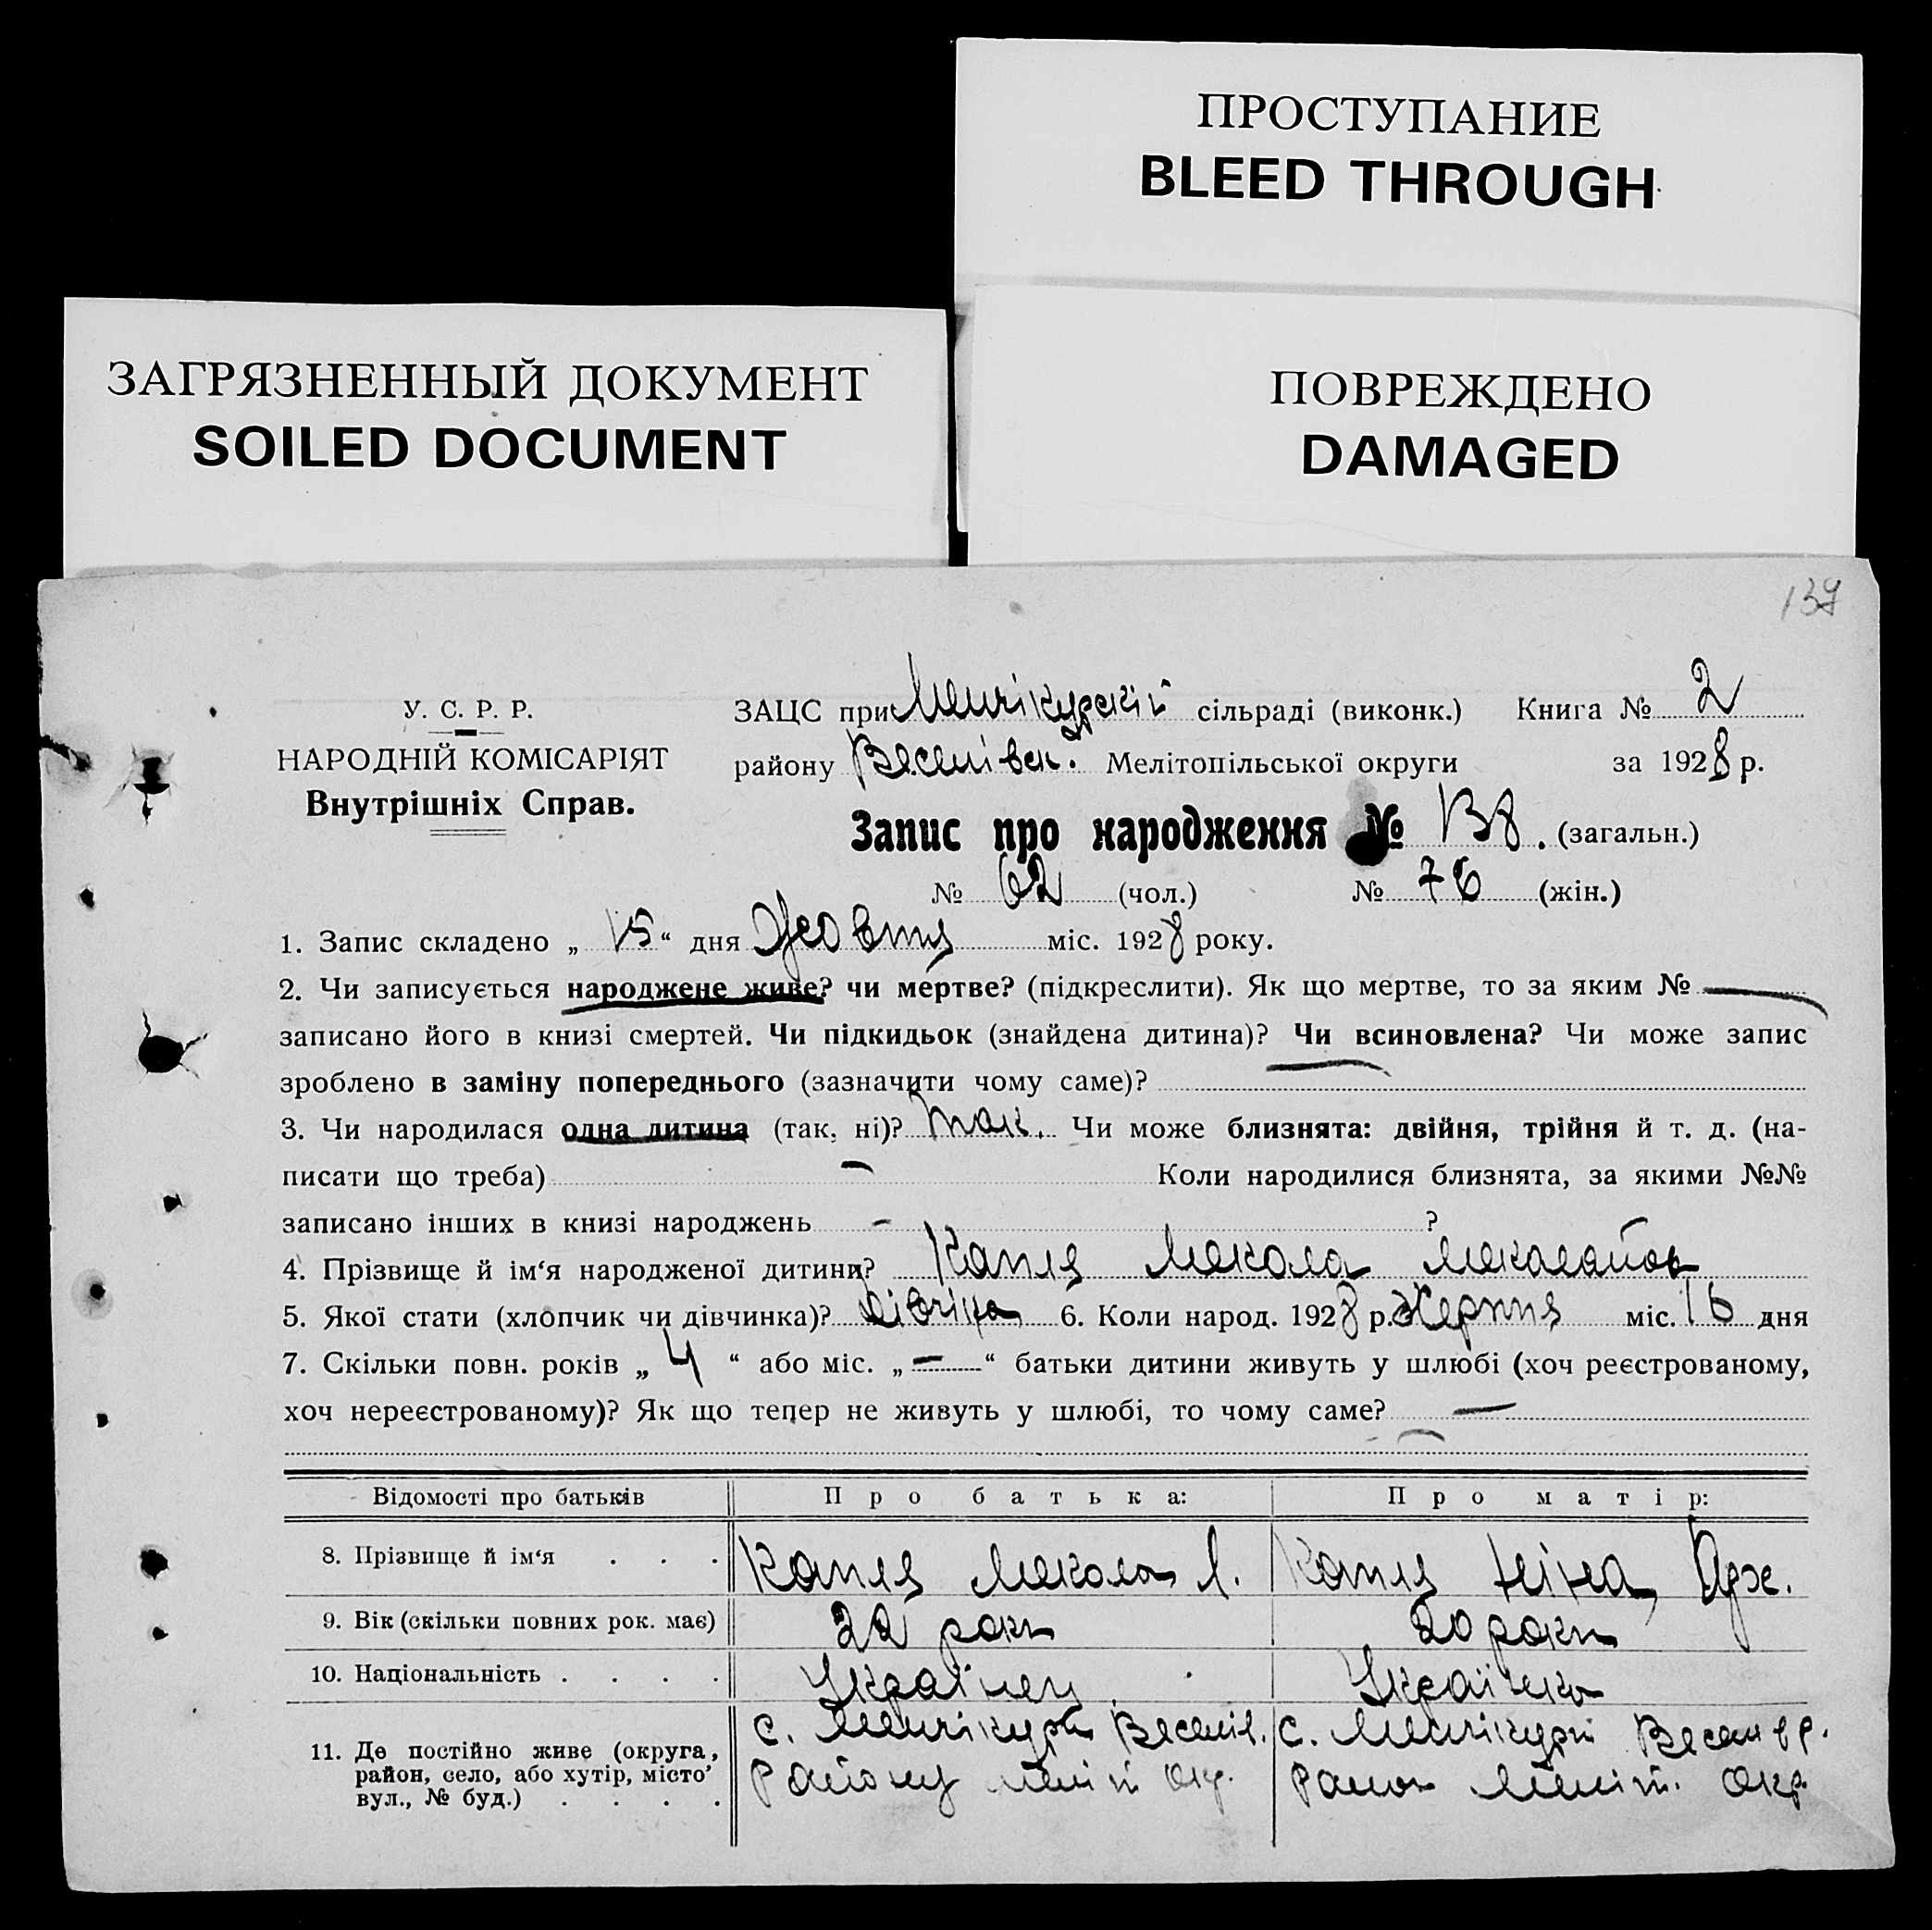 ПРОСТУПАНИЕ
BLEED THROUGH
ЗАГРЯЗНЕННЫЙ ДОКУМЕНТ
SOILED DOCUMENT
ПОВРЕЖДЕНО
DAMAGED
139
У. С. Р. Р.
НАРОДНІЙ КОМІСАРІЯТ
Внутрішніх Справ.
ЗАЦС при Менчікурскій сільраді (виконк.) Книга № 2
району Веселівск. Мелітопільської округи за 1928 р.
Запис про народження № 138. (загальн.)
№ 62 (чол.) № 76 (жін.)
1. Запис складено „15“ дня Жовтня міс. 1928 року.
2. Чи записується народжене живе? чи мертве? (підкреслити). Як що мертве, то за яким № —
записано його в книзі смертей. Чи підкидьок (знайдена дитина)? Чи всиновлена? Чи може запис
зроблено в заміну попереднього (зазначити чому саме)?
3. Чи народилася одна дитина (так, ні)? так. Чи може близнята: двійня, трійня й т. д. (на-
писати що треба) — Коли народилися близнята, за якими №№
записано інших в книзі народжень — ?
4. Прізвище й ім‘я народженої дитини? Капля Мекола
5. Якої стати (хлопчик чи дівчинка)? дівчіна 6. Коли народ. 1928 р. міс. 16 дня
7. Скільки повн. років „4“ або міс. „—“ батьки дитини живуть у шлюбі (хоч реєстрованому,
хоч нереєстрованому)? Як що тепер не живуть у шлюбі, то чому саме? —
Відомості про батьків Про батька: Про матір:
8. Прізвище й ім‘я . . . Капля Мекола Л. Капля Ніна
9. Вік (скільки повних рок. має) 22 роки 20 роки
10. Національність . . . . Українец Українка
11. Де постійно живе (округа, с. Менчікури Веселів. с. Менчікури
район, село, або хутір, місто’ Району Меліт Окр. Меліт. Окр.
вул., № буд.) . . . .